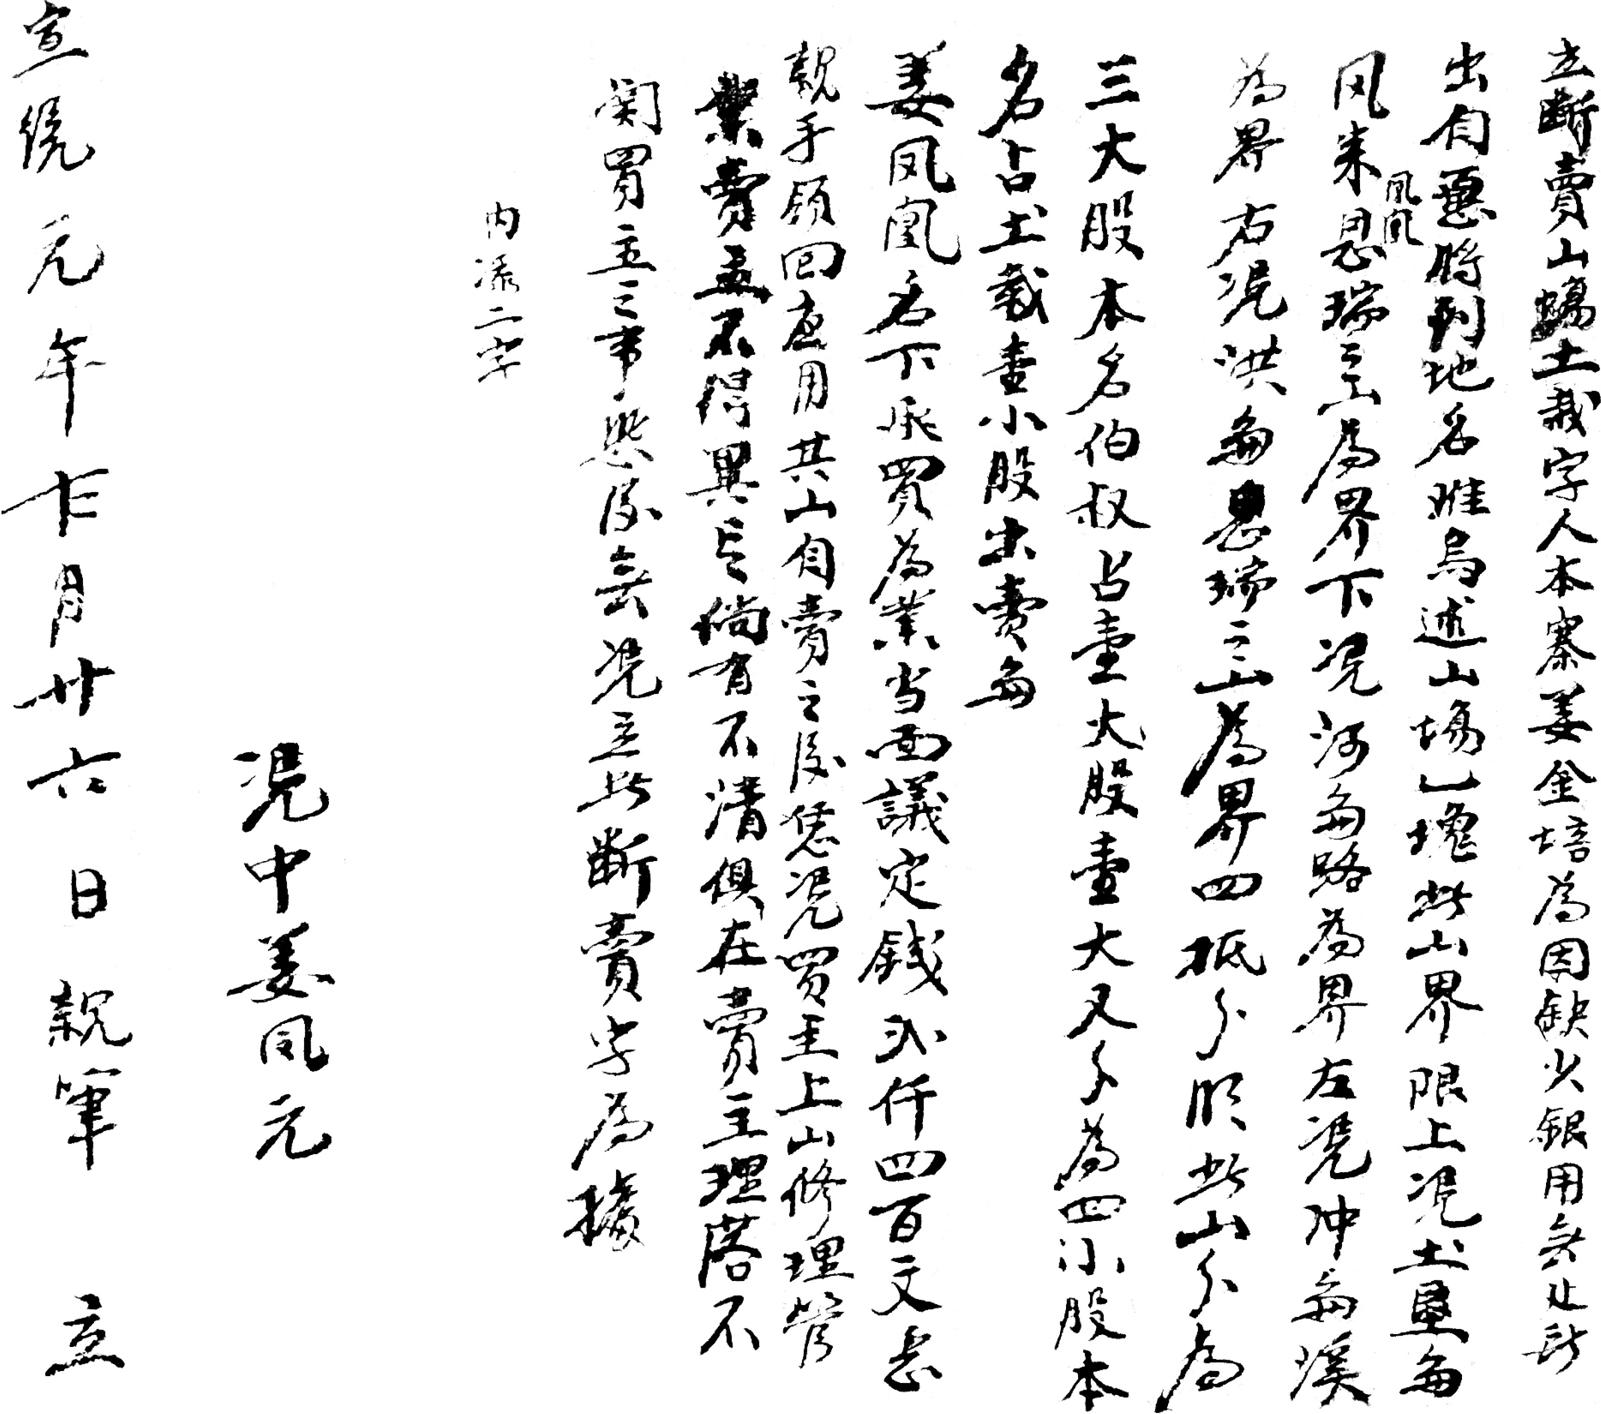 立斷賣山塲土栽字人本寨姜金培為因缺少銀用無処所
出自愿將到地名唯烏述山塲乚塊此山界限上凴土墾与
凤来恩瑞之山為界下凴河与路為界左凴冲与溪
凤凰
為界右凴洪与恩瑞之山為界四抵分明此山分為
三大股本名伯叔占壹大股壹大又分為四小股本
名占土栽壹小股出賣与
姜凤凰名下承買為業当面議定錢弍仟四百文
親手領回應用其山自賣之後恁凴買主上山修理管
業賣主不得異言倘有不清俱在賣主理落不
関買主之事恐後無凴立此断賣字為據
内添二字
凴中姜凤元
宣統元年月廿六日親筆 立